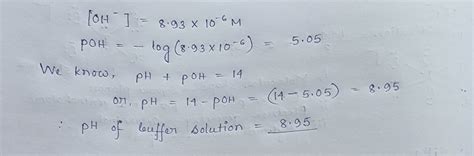 [OH⁻] = 8.93 × 10⁻⁶ M
pOH = - log (8.93×10⁻⁶) = 5.05
We know, pH + pOH = 14
or, pH = 14 - pOH = (14 - 5.05) = 8.95
∴ pH of buffer solution = 8.95